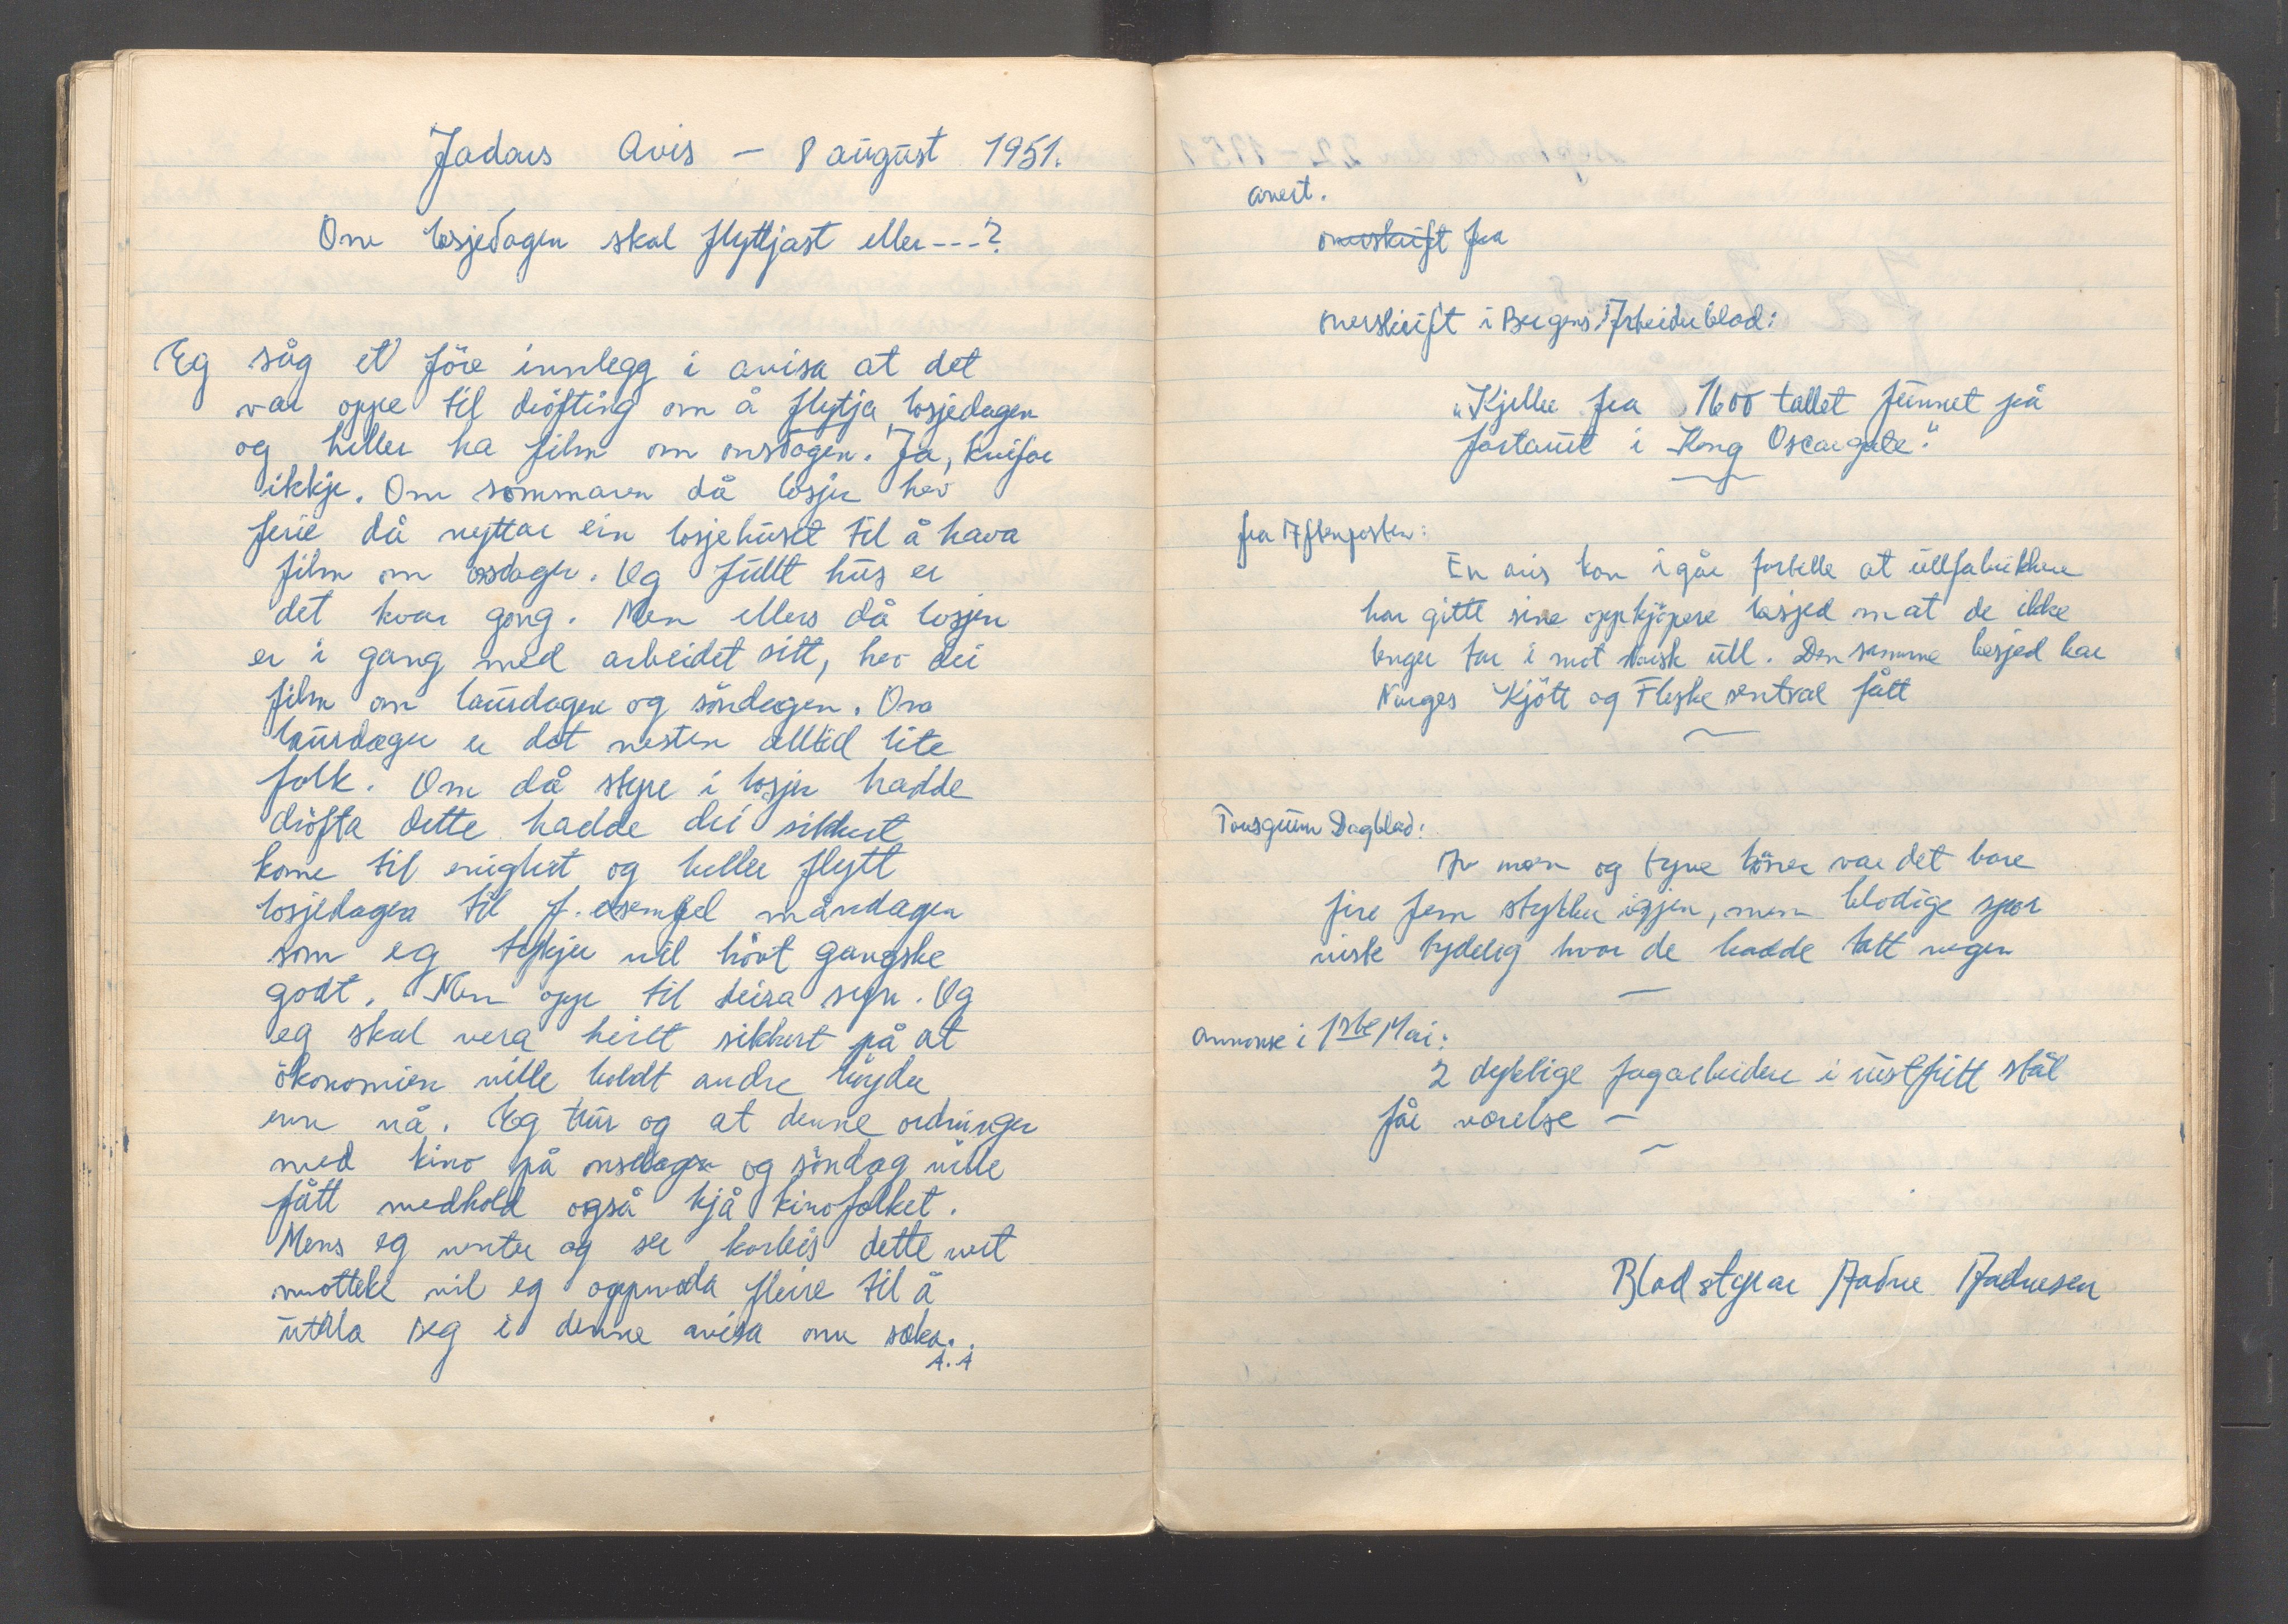 Jadars Avis - 8 august 1951.
Om losjedagen skal flyttjast eller---?
Eg såg et före innlegg i avisa at det
var oppe til dröfting om å flytja losjedagen
og heller ha film om onsdagen. Ja, kvifor
ikkje. Om sommaren då losjen hev
ferie då nyttar ein losjehuset til å hava
film om osdagen. Og fullt hus er
det kvar gong. Men ellers då losjen
er i gang med arbeidet sitt, hev dei
film om laurdagen og söndagen. Om
laurdagen er det nesten alltid lite
folk. Om då styre i losjen hadde
dröfta dette hadde dei sikkert
kome til enighet og heller flytt
losjedagen til f. eksempel måndagen
som eg tykjer vil hövt gangske
godt. Men opp til deira syn. Og
eg skal vera heilt sikkert på at
ökonomien ville holdt andre höyder
enn nå. Eg trur og at denne ordningen
med kino på onsdagen og söndag ville
fått medhold også hjå kinofolket.
Mens eg venter og ser korleis dette vert
motteke vil eg oppmoda fleire til å
uttala seg i denne avisa om saka.
A. A
avert.
overskrift fra
overskrift i Bergens Arbeiderblad:
"Kjeller fra 1600 tallet funnet på
fortauet i Kong Oscargate."
fra Aftenposten:
En avis kan igår fortelle at ullfabrikkene
har gitt sine oppkjöpere besjed om at de ikke
lenger tar i mot Norsk ull. Den samme besjed har
Norges Kjött og Fleske sentral fått
Dagblad:
Av men og tyve höner var det bare
fire fem stykker igjen, men blodige spor
viste tydelig hvor de hadde tatt vegen
annonse i 1ste Mai:
2 dyktige fagarbeidere i rustfritt stål
får værelse -
Bladstyrar Aadne Aadnesen